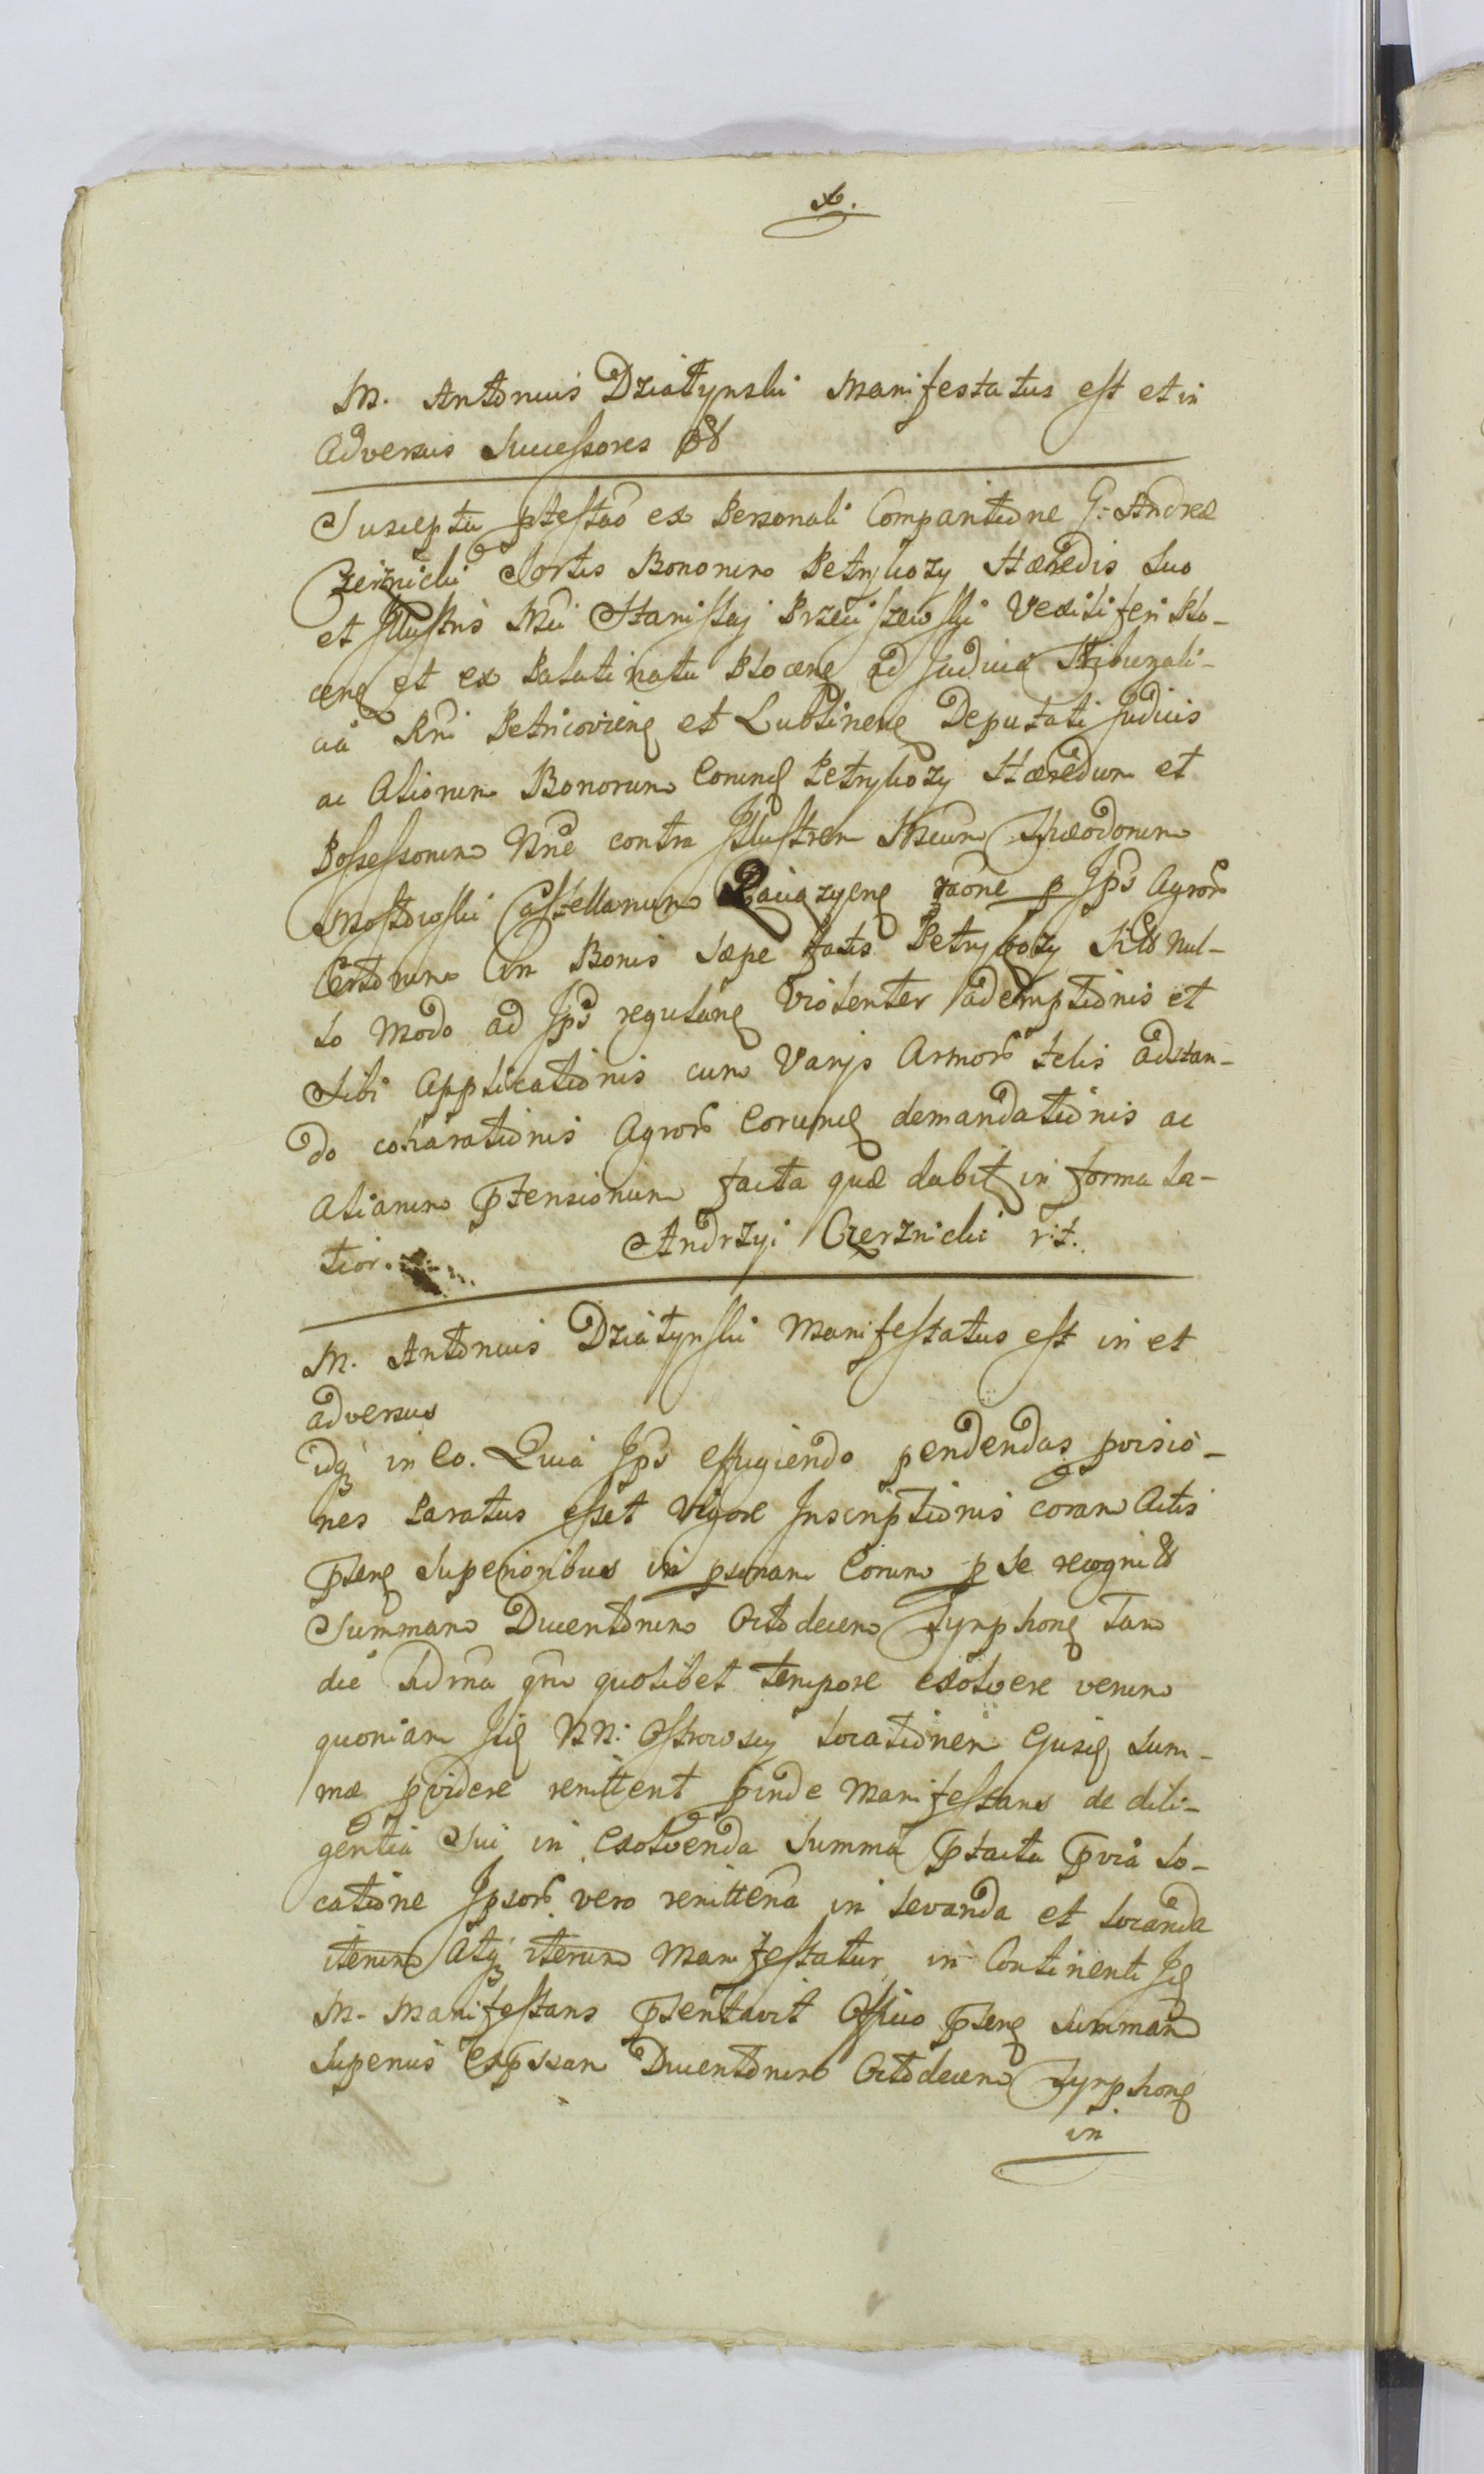 M. Antonius Działynski Manifestatus est et in
Adversus Successores
Suscepta ptestao ex Personali Comparitione G. Andreæ
Czerznicki Sortis Bonorum Petrykozy Hæredis suo
et Illustris Mci Stanislaj Vexilliferi Plo-
cens et ex Palatinatu Plocens ad Judicia Tribunali-
cia Rni Petricoviens et Lublinens Deputati Judicis
ac Aliorum Bonorum Eorund Petrykozy Hæredum et
Possessorum Nne contra Illustrem Mcum Theodorum
Mostowski Castellanum raone p Ips Agror
Certorum in Bonis sæpe fatis Petrykozy nul-
lo modo ad Ips regulans Violenter ademptionis et
Sibi Applicationis cum Varijs Armor telis adstan-
do Agror Eorund demandationis ac
Aliarum ptensionum facta quæ dabit in forma La-
tior. Andrzyi Czerznicki
M. Antonius Działynski Manifestatus est in et
adversus
idq in eo. Quia Ips effugiendo pendendas
nes Paratus esset Vigore Inscriptionis coram Actis
psens Superioribus in psonam Eorum p se
Summam Ducentorum Octodecem Tynphons Tam
die quotibet tempore exolvere verum
quoniam Iid NN. Ostrowscy Locationem Ejusd Sum-
mæ pvidere renittent pinde Manifestans de dili-
gentia Sui in Exolvenda Summa ptacta pvia Lo-
catione Ipsor vero renittena in Levanda et Locanda
iterum Atq iterum Manifestatur in Continenti Id
M. Manifestans psentavit Officio psens Summam
Superius expssam Ducentorum Octodecem Tynphons
in